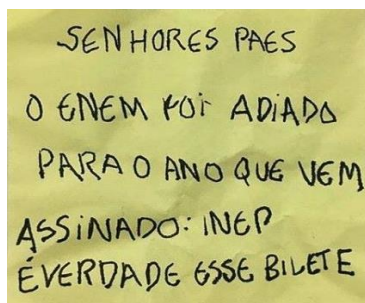 SENHORES PAES
O ENEM FOI ADIADO
PARA O ANO QUE VEM
ASSINADO: INEP
ÉVERDADE ESSE BILETE